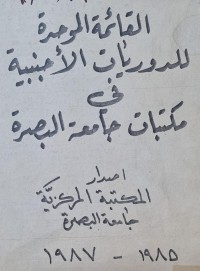 القائمة الموحدة
للدوريات الأجنبية
في
مكتبات جامعة البصرة
اصدار
المكتبة المركزية
جامعة البصرة
١٩٨٥ - ١٩٨٧